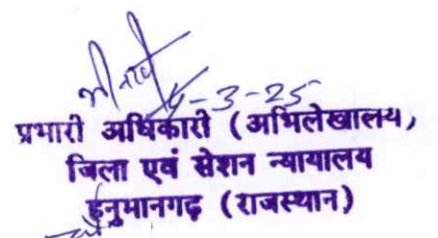 4-3-25
प्रभारी अधिकारी (अभिलेखालय)
जिला एवं सेशन न्यायालय
हनुमानगढ़ (राजस्थान)